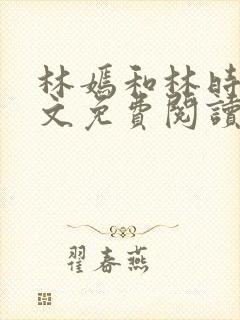 林媽和林時
文免費閱讀
翟春燕